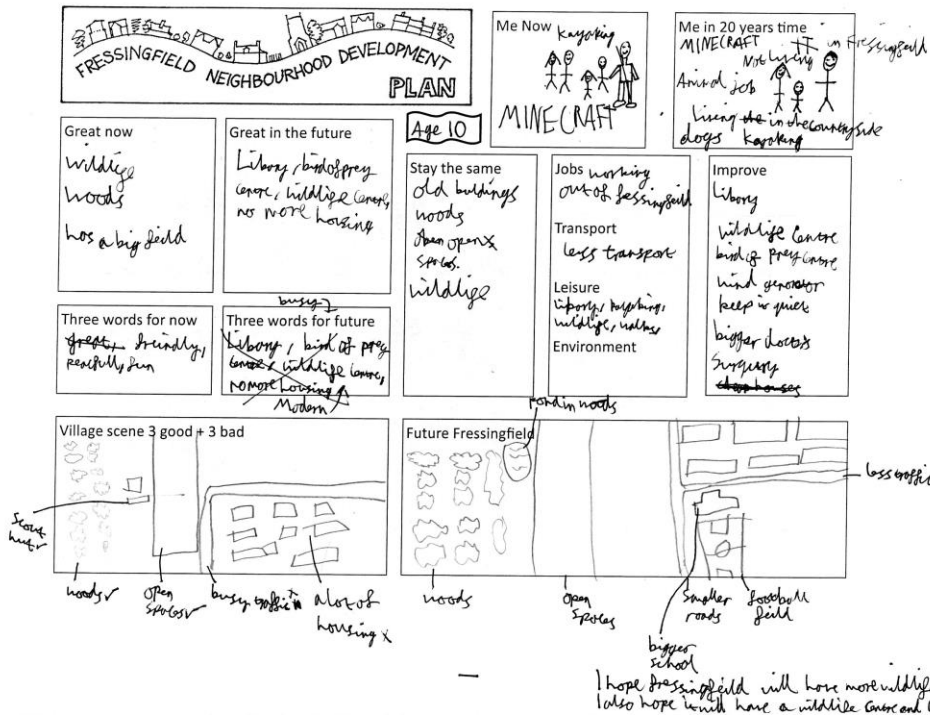 FRESSINGFIELD NEIGHBOURHOOD DEVELOPMENT
PLAN
Me Now
kayaking
MINECRAFT
Me in 20 years time
MINECRAFT IT in Fressingfeild
Not living
Animal job
Living the in the countryside
dogs kayaking
Age 10
Great now
wildlife
woods
has a big feild
Great in the future
Libory, bird of prey
centre, wildlife centre,
no more housing
Stay the same
old buildings
woods
open
spaces.
wildlife
Jobs working
out of fessingfeild
Transport
less transport
Leisure
libory, kayaking,
wildlife, walks
Environment
Improve
Libory
wildlife centre
bird of prey centre
wind generator
keep it quiet
bigger doctors
surgery
shop houses
Three words for now
great, friendly,
peacefull, fun
busy
Three words for future
Libory, bird of prey
centre, wildlife centre,
no more housing
Modern
Village scene 3 good + 3 bad
scout
hut
woods
open
spaces
busy traffic
a lot of
housing x
Future Fressingfield
pond in woods
less traffic
woods
open
spaces
smaller
roads
football
feild
bigger
school
I hope fressingfeild will have more wildlife
I also hope it will have a wildlife centre and